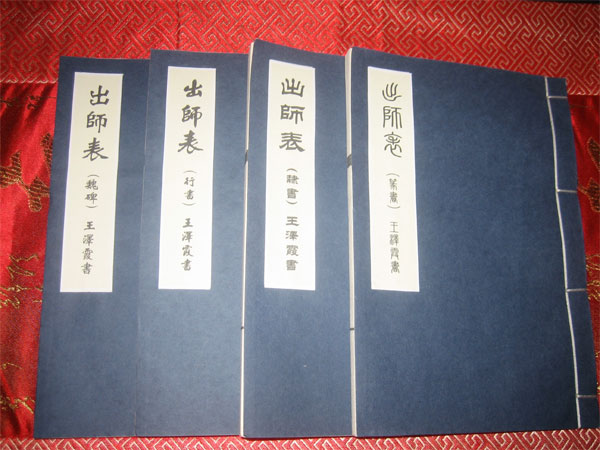 出師表（魏碑）王澤霞書
出師表（行書）王澤霞書
出師表（隸書）王澤霞書
出師表（篆書）王澤霞書